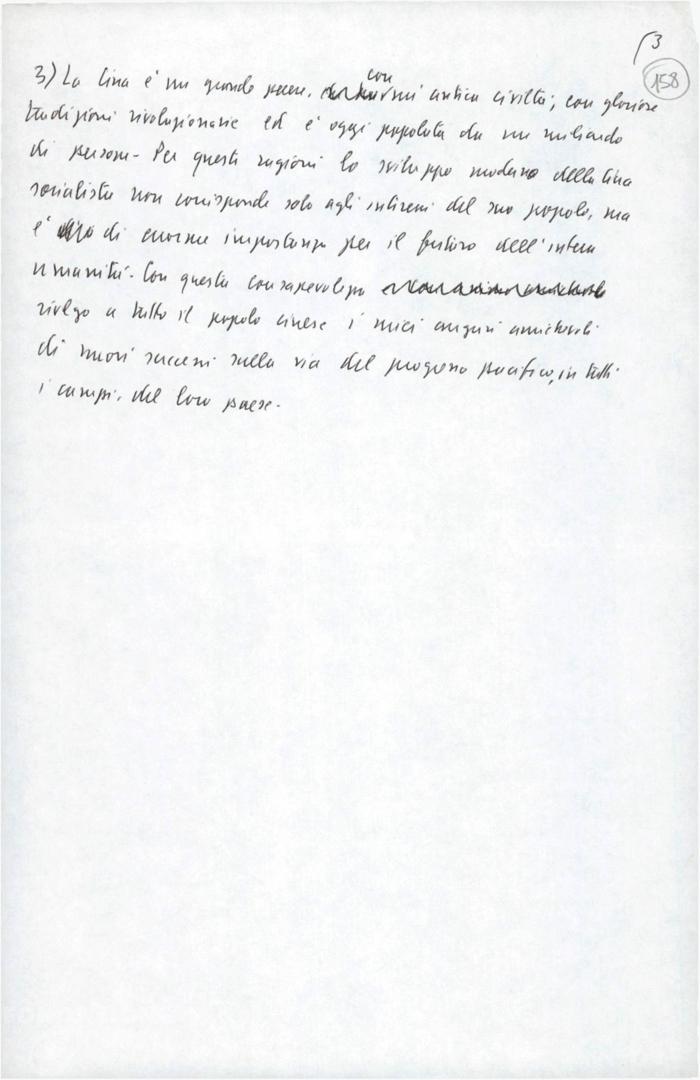 3
158
con
3) La Cina è un grande paese, un' antica civiltà, con gloriose
tradizioni rivoluzionarie ed è oggi popolata da un miliardo
di persone - Per questi ragioni lo sviluppo moderno della Cina
socialista non corrisponde solo agli interessi del suo popolo, ma
è di enorme importanza per il futuro dell'intera
umanità. Con questa consapevolezza
rivolgo a tutto il popolo cinese i miei auguri amichevoli
di nuovi successi sulla via del progresso pacifico, in tutti
i campi, del loro paese.